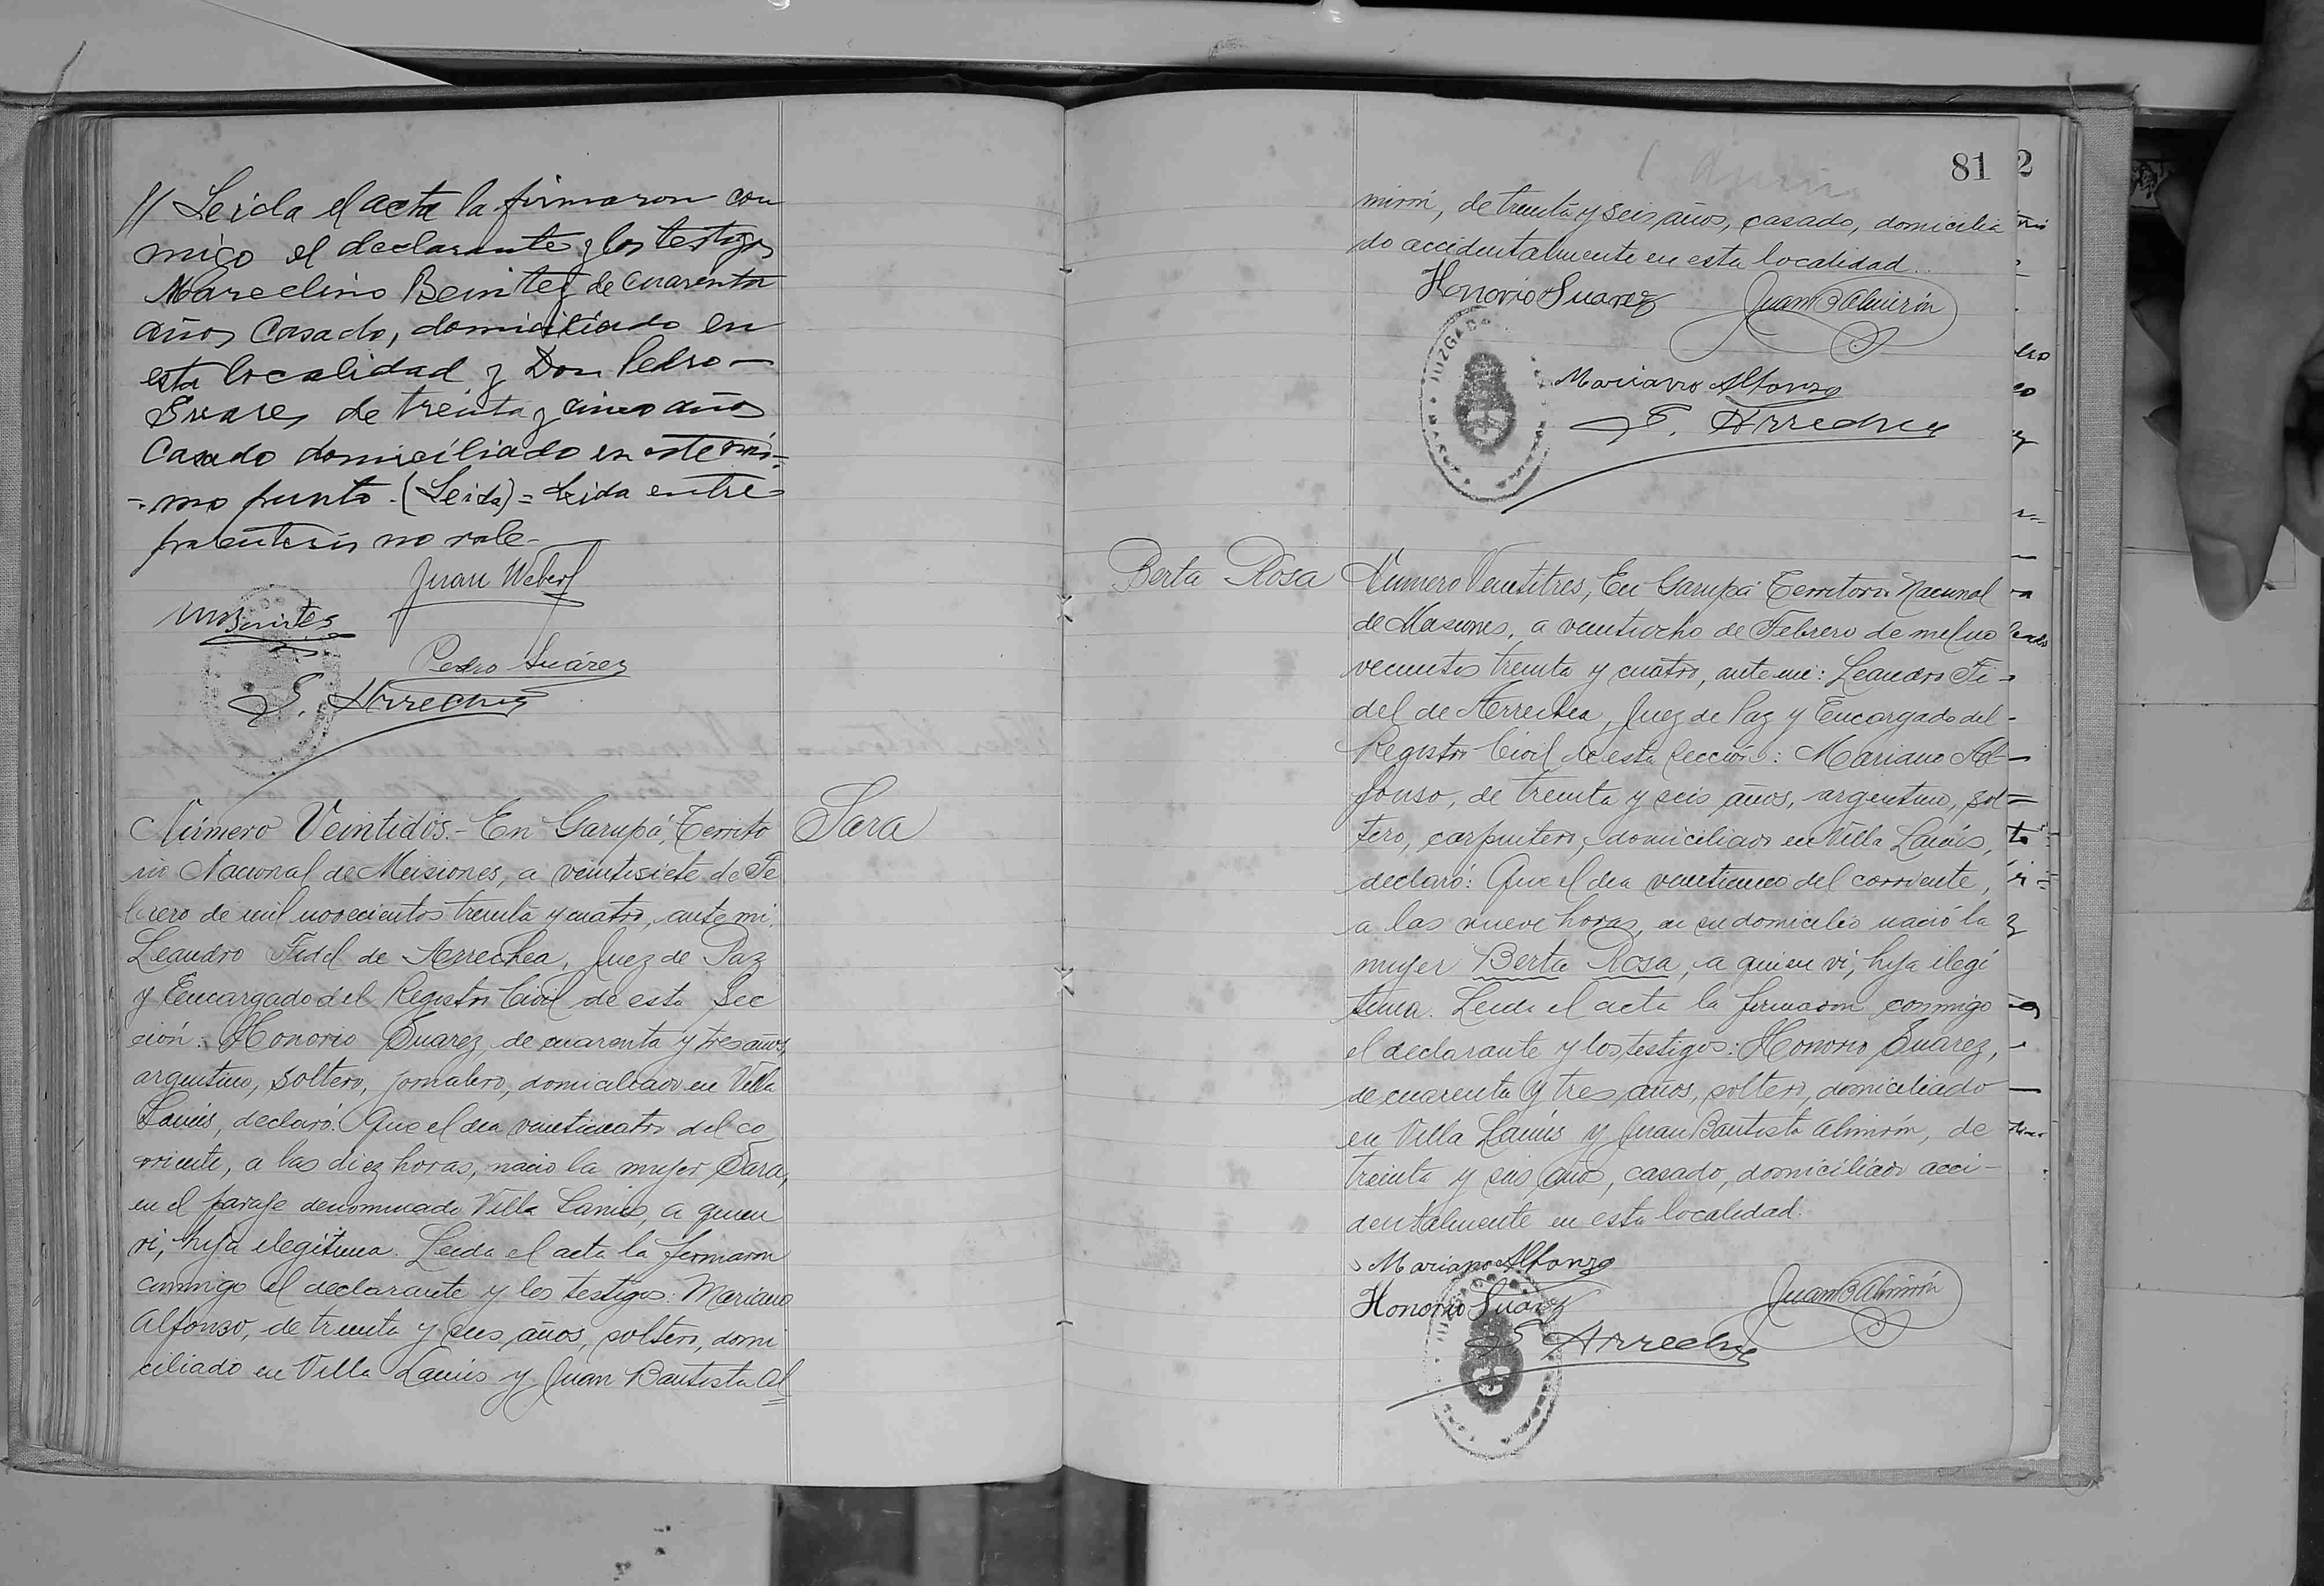 // Leida el acta la firmaron con
migo el declarante y los testigos
Marcelino Beinitez de cuarenta
años Casado, domiciliado en
esta localidad y Don Pedro —
Suares de treinta y cinco años
Casado domiciliado en este mis=
-mo punto. (Leida) = Leida entre
parentesis no vale-
Juan Weber
M Beinites
Pedro Suárez
F. Arrechea
Número Veintidós.- En Garupá, Territo
rio Nacional de Misiones, a veintisiete de Fe
brero de mil novecientos treinta y cuatro, ante mi,
Leandro Fidel de Arrechea, Juez de Paz
y Encargado del Registro Civil de esta Sec
ción: Honorio Suarez, de cuarenta y tres años,
argentino, soltero, jornalero, domiciliado en Villa
Lanús, declaró: Que el dia veinticuatro del co
rriente, a las diez horas, nació la mujer Sara,
en el paraje denominado Villa Lanús, a quien
vi, hija ilegitima. Leida el acta la firmaron
conmigo el declarante y los testigos: Mariano
Alfonso, de treinta y seis años, soltero, domi
ciliado en Villa Lanús y Juan Bautista Al=
Sara
81 2
mirón, de treinta y seis años, casado, domicilia
do accidentalmente en esta localidad..
Honorio Suarez
Juan B Almirón
JUZGADO
Mariano Alfonzo
F. Arrechea
Berta Rosa
Número Veintitres, En Garupá Territorio Nacional
de Misiones, a veintiocho de Febrero de mil no
vecientos treinta y cuatro, ante mi: Leandro Fi-
del de Arrechea, Juez de Paz y Encargado del-
Registro Civil de esta Sección: Mariano Al-
fonso, de treinta y seis años, argentino, sol=
tero, carpintero, domiciliado en Villa Lanús,
declaró: Que el dia veinticinco del corriente,
a las nueve horas, en su domicilio nació la
mujer Berta Rosa, a quien vi, hija ilegi
tima. Leida el acta la firmaron conmigo
el declarante y los testigos: Honorio Suarez,
de cuarenta y tres años, soltero, domiciliado
en Villa Lanús y Juan Bautista Almirón, de
treinta y seis años, casado, domiciliado acci-
dentalmente en esta localidad.
Mariano Alfonzo
Honorio Suarez
Juan B Almirón
F Arrechea